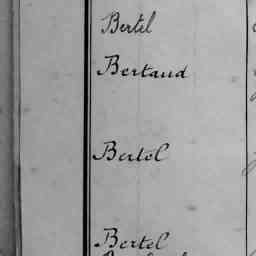 Bertel
Bertaud
Bertol
Bertel